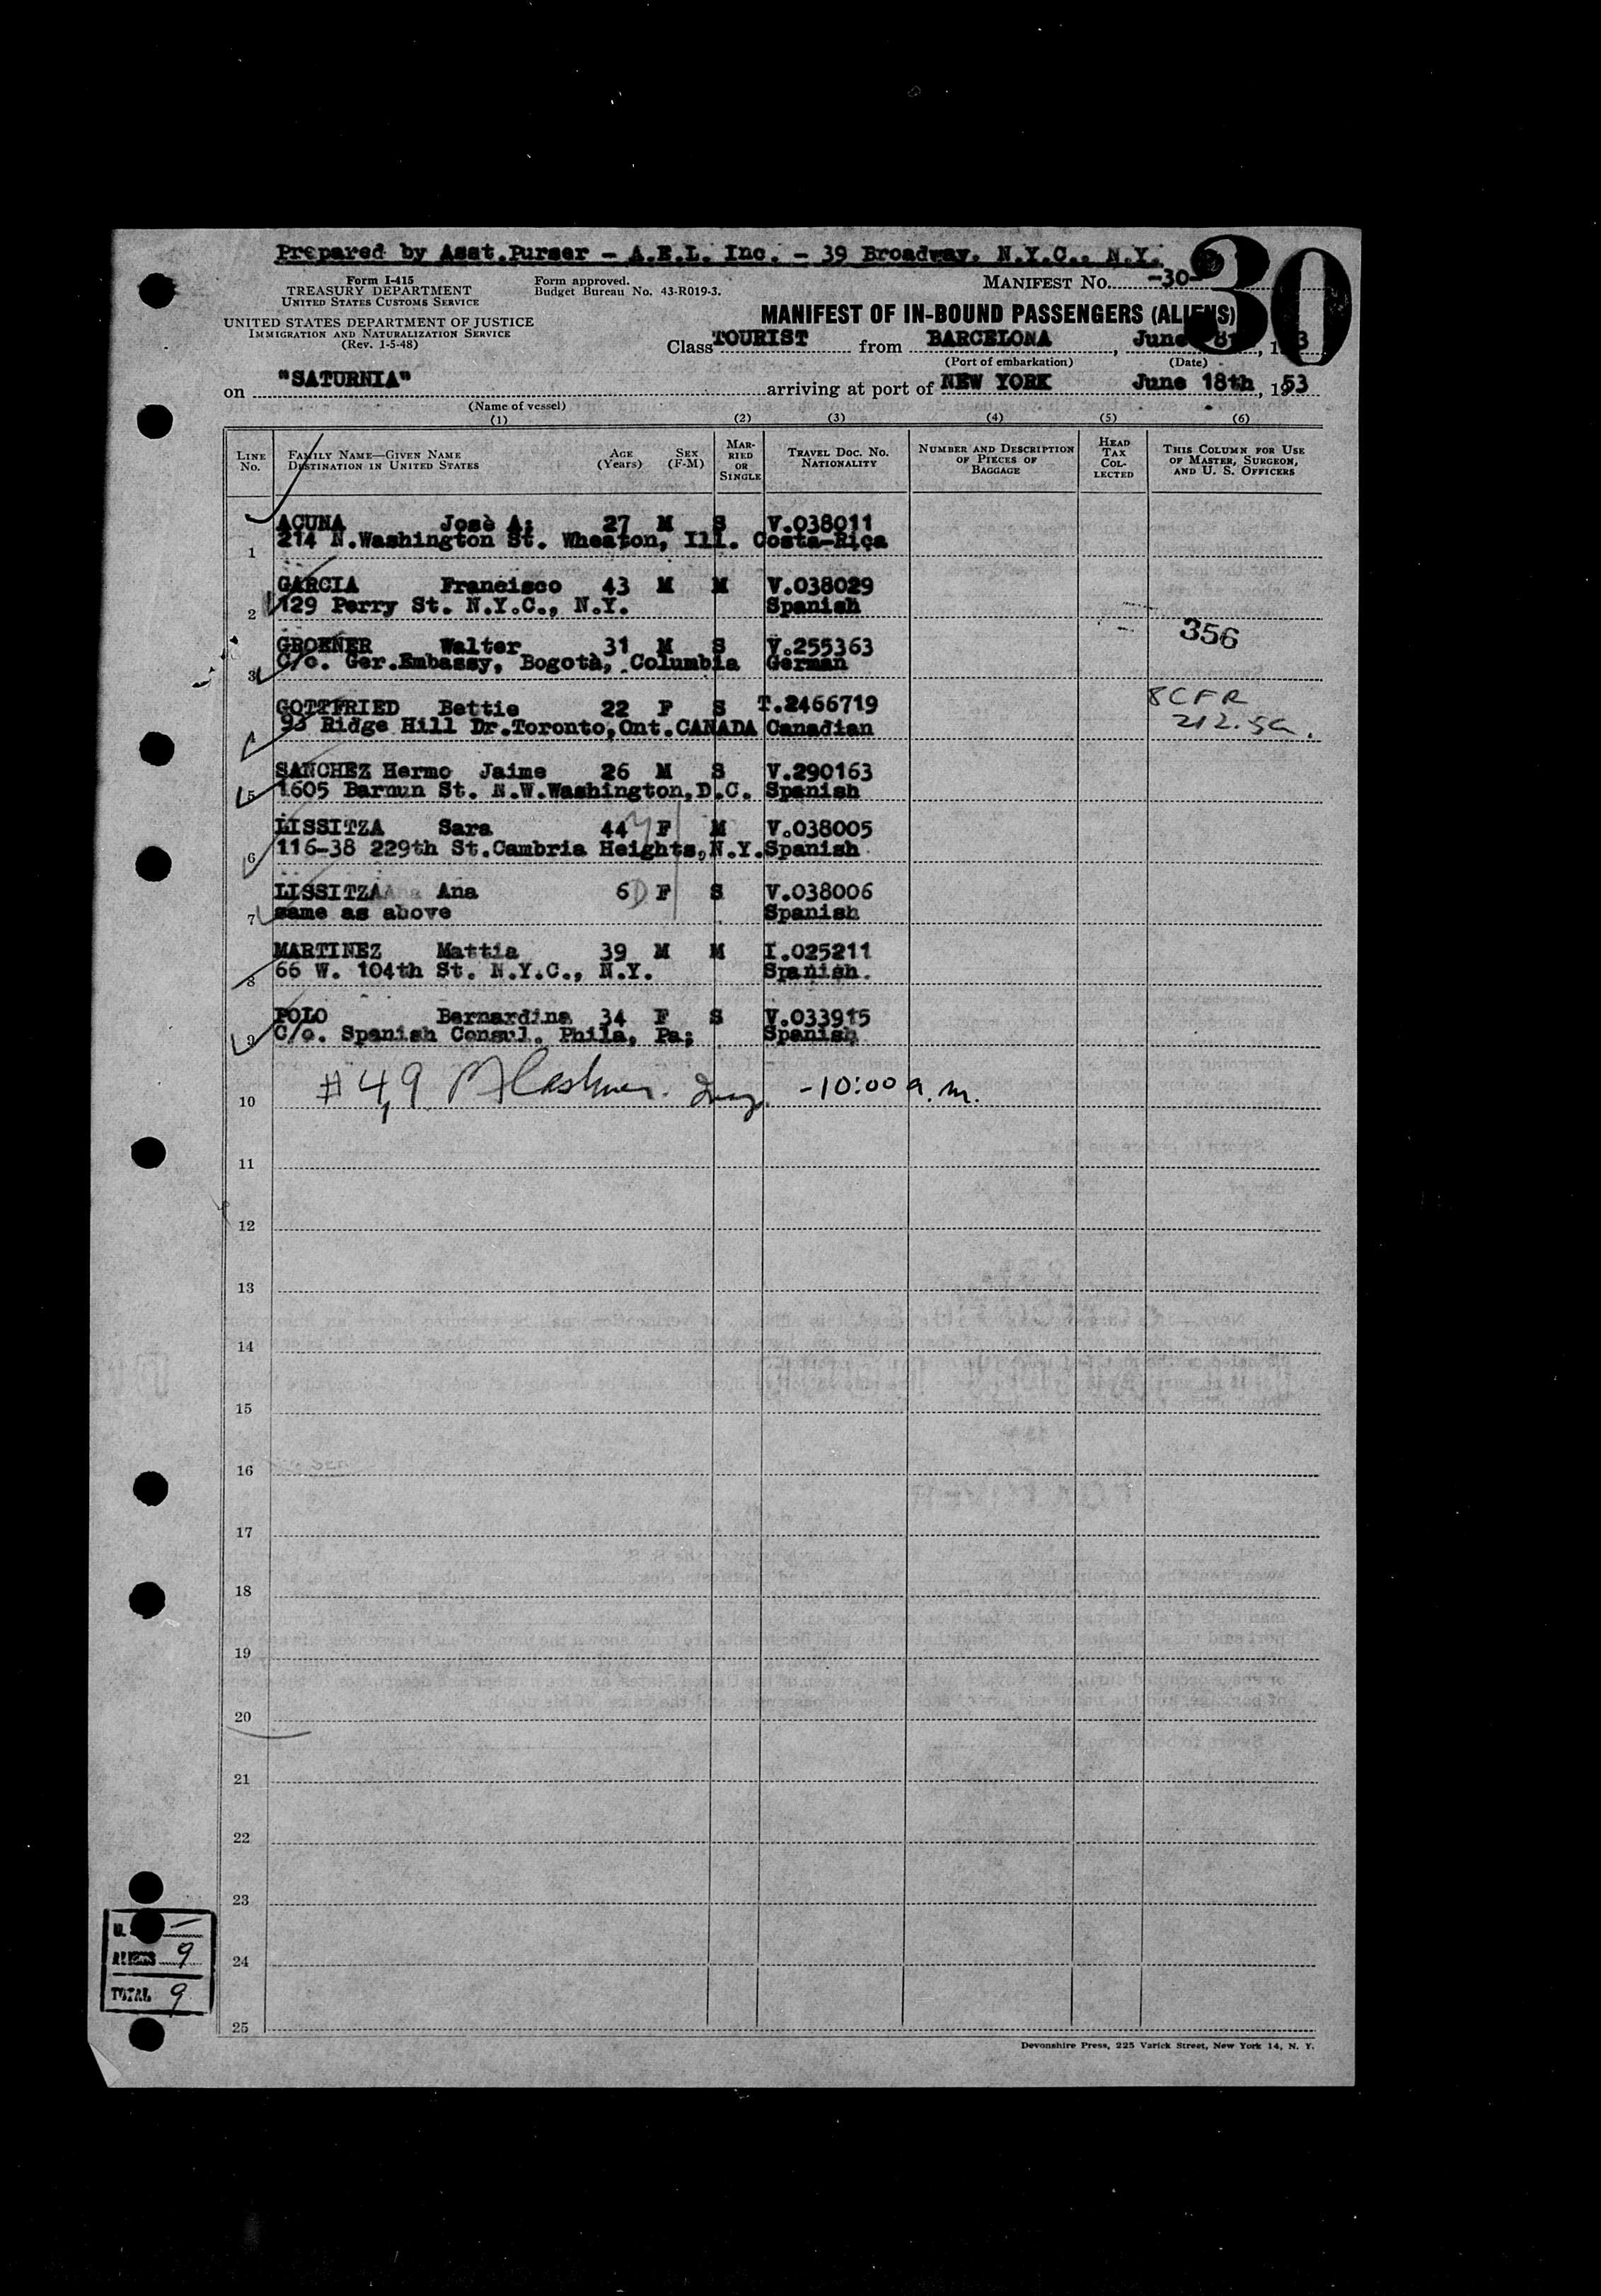 Prepared by Asst.Purser - A.E.L. Inc. - 39 Broadway. N.Y.C., N.Y.
30
Form I-415
TREASURY DEPARTMENT
UNITED STATES CUSTOMS SERVICE
Form approved.
Budget Bureau No. 43-R019-3.
MANIFEST No. -30-
UNITED STATES DEPARTMENT OF JUSTICE
IMMIGRATION AND NATURALIZATION SERVICE
(Rev. 1-5-48)
MANIFEST OF IN-BOUND PASSENGERS (ALIENS)
Class TOURIST from BARCELONA, June
(Port of embarkation) (Date)
on "SATURNIA" arriving at port of NEW YORK June 18th, 1953
(Name of vessel)
(1) (2) (3) (4) (5) (6)
LINE No. FAMILY NAME—GIVEN NAME DESTINATION IN UNITED STATES AGE (Years) SEX (F-M) MARRIED OR SINGLE TRAVEL DOC. NO. NATIONALITY NUMBER AND DESCRIPTION OF PIECES OF BAGGAGE HEAD TAX COLLECTED THIS COLUMN FOR USE OF MASTER, SURGEON, AND U. S. OFFICERS
ACUNA Josè A; 27 M S V.038011
1 214 N.Washington St. Wheaton, Ill. Costa-Rica
GARCIA Francisco 43 M M V.038029
2 129 Perry St. N.Y.C., N.Y. Spanish
GROENER Walter 31 M S V.255363 356
3 C/o. Ger.Embassy, Bogotà, Columbia German
GOTTFRIED Bettie 22 F S T.2466719 8CFR
4 93 Ridge Hill Dr.Toronto,Ont.CANADA Canadian 212.5a.
SANCHEZ Hermo Jaime 26 M S V.290163
5 1605 Barnun St. N.W.Washington,D.C. Spanish
LISSITZA Sara 44 F M V.038005
6 116-38 229th St.Cambria Heights,N.Y. Spanish
LISSITZA Ana 6 F S V.038006
7 same as above Spanish
MARTINEZ Mattia 39 M M I.025211
8 66 W. 104th St. N.Y.C., N.Y. Spanish.
POLO Bernardina 34 F S V.033915
9 C/o. Spanish Consul. Phila, Pa; Spanish
10 #4,9 -10:00 a.m.
11
12
13
14
15
16
17
18
19
20
21
22
23
24
25
ALIENS 9
TOTAL 9
Devonshire Press, 225 Varick Street, New York 14, N. Y.